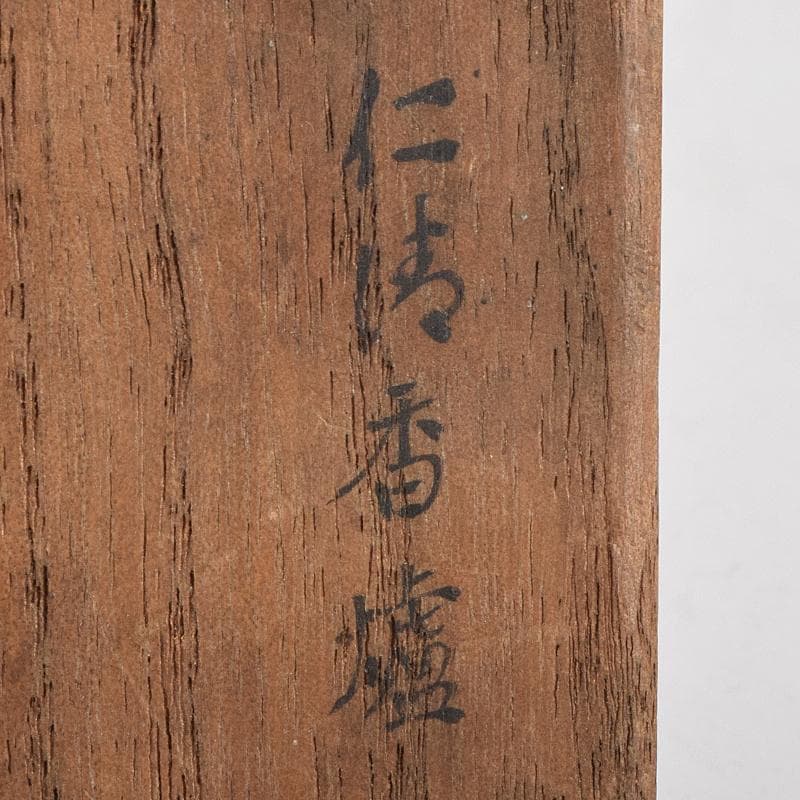 仁清香爐